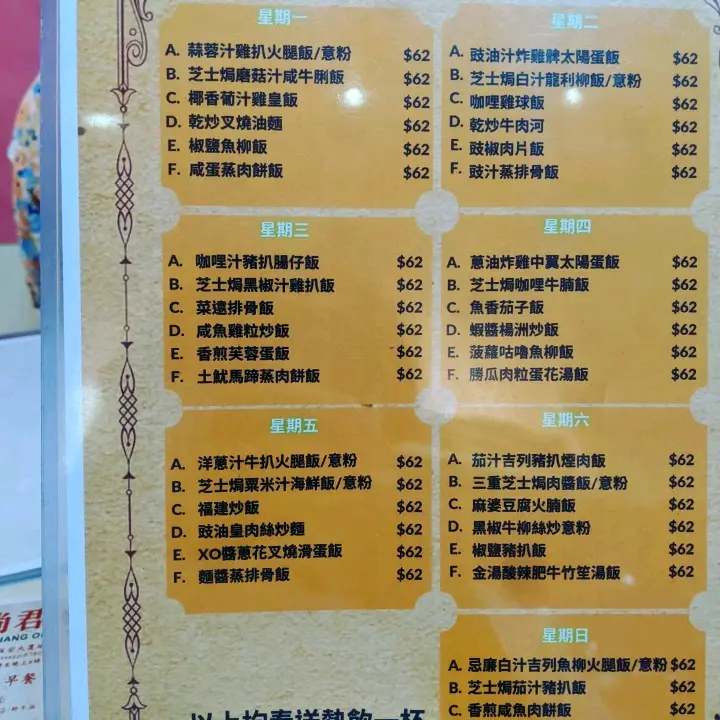 星期一
A. 蒜蓉汁雞扒火腿飯/意粉 $62
B. 芝士焗磨菇汁咸牛脷飯 $62
C. 椰香葡汁雞皇飯 $62
D. 乾炒叉燒油麵 $62
E. 椒鹽魚柳飯 $62
F. 咸蛋蒸肉餅飯 $62
星期二
A. 豉油汁炸雞髀太陽蛋飯 $62
B. 芝士焗白汁龍利柳飯/意粉 $62
C. 咖哩雞球飯 $62
D. 乾炒牛肉河 $62
E. 豉椒肉片飯 $62
F. 豉汁蒸排骨飯 $62
星期三
A. 咖哩汁豬扒腸仔飯 $62
B. 芝士焗黑椒汁雞扒飯 $62
C. 菜遠排骨飯 $62
D. 咸魚雞粒炒飯 $62
E. 香煎芙蓉蛋飯 $62
F. 土魷馬蹄蒸肉餅飯 $62
星期四
A. 蔥油炸雞中翼太陽蛋飯 $62
B. 芝士焗咖哩牛腩飯 $62
C. 魚香茄子飯 $62
D. 蝦醬楊洲炒飯 $62
E. 菠蘿咕嚕魚柳飯 $62
F. 勝瓜肉粒蛋花湯飯 $62
星期五
A. 洋蔥汁牛扒火腿飯/意粉 $62
B. 芝士焗粟米汁海鮮飯/意粉 $62
C. 福建炒飯 $62
D. 豉油皇肉絲炒麵 $62
E. XO醬蔥花叉燒滑蛋飯 $62
F. 麵醬蒸排骨飯 $62
星期六
A. 茄汁吉列豬扒煙肉飯 $62
B. 三重芝士焗肉醬飯/意粉 $62
C. 麻婆豆腐火腩飯 $62
D. 黑椒牛柳絲炒意粉 $62
E. 椒鹽豬扒飯 $62
F. 金湯酸辣肥牛竹笙湯飯 $62
星期日
A. 忌廉白汁吉列魚柳火腿飯/意粉 $62
B. 芝士焗茄汁豬扒飯 $62
C. 香煎咸魚肉餅飯 $62
以上均奉送熱飲一杯
尚君
早餐